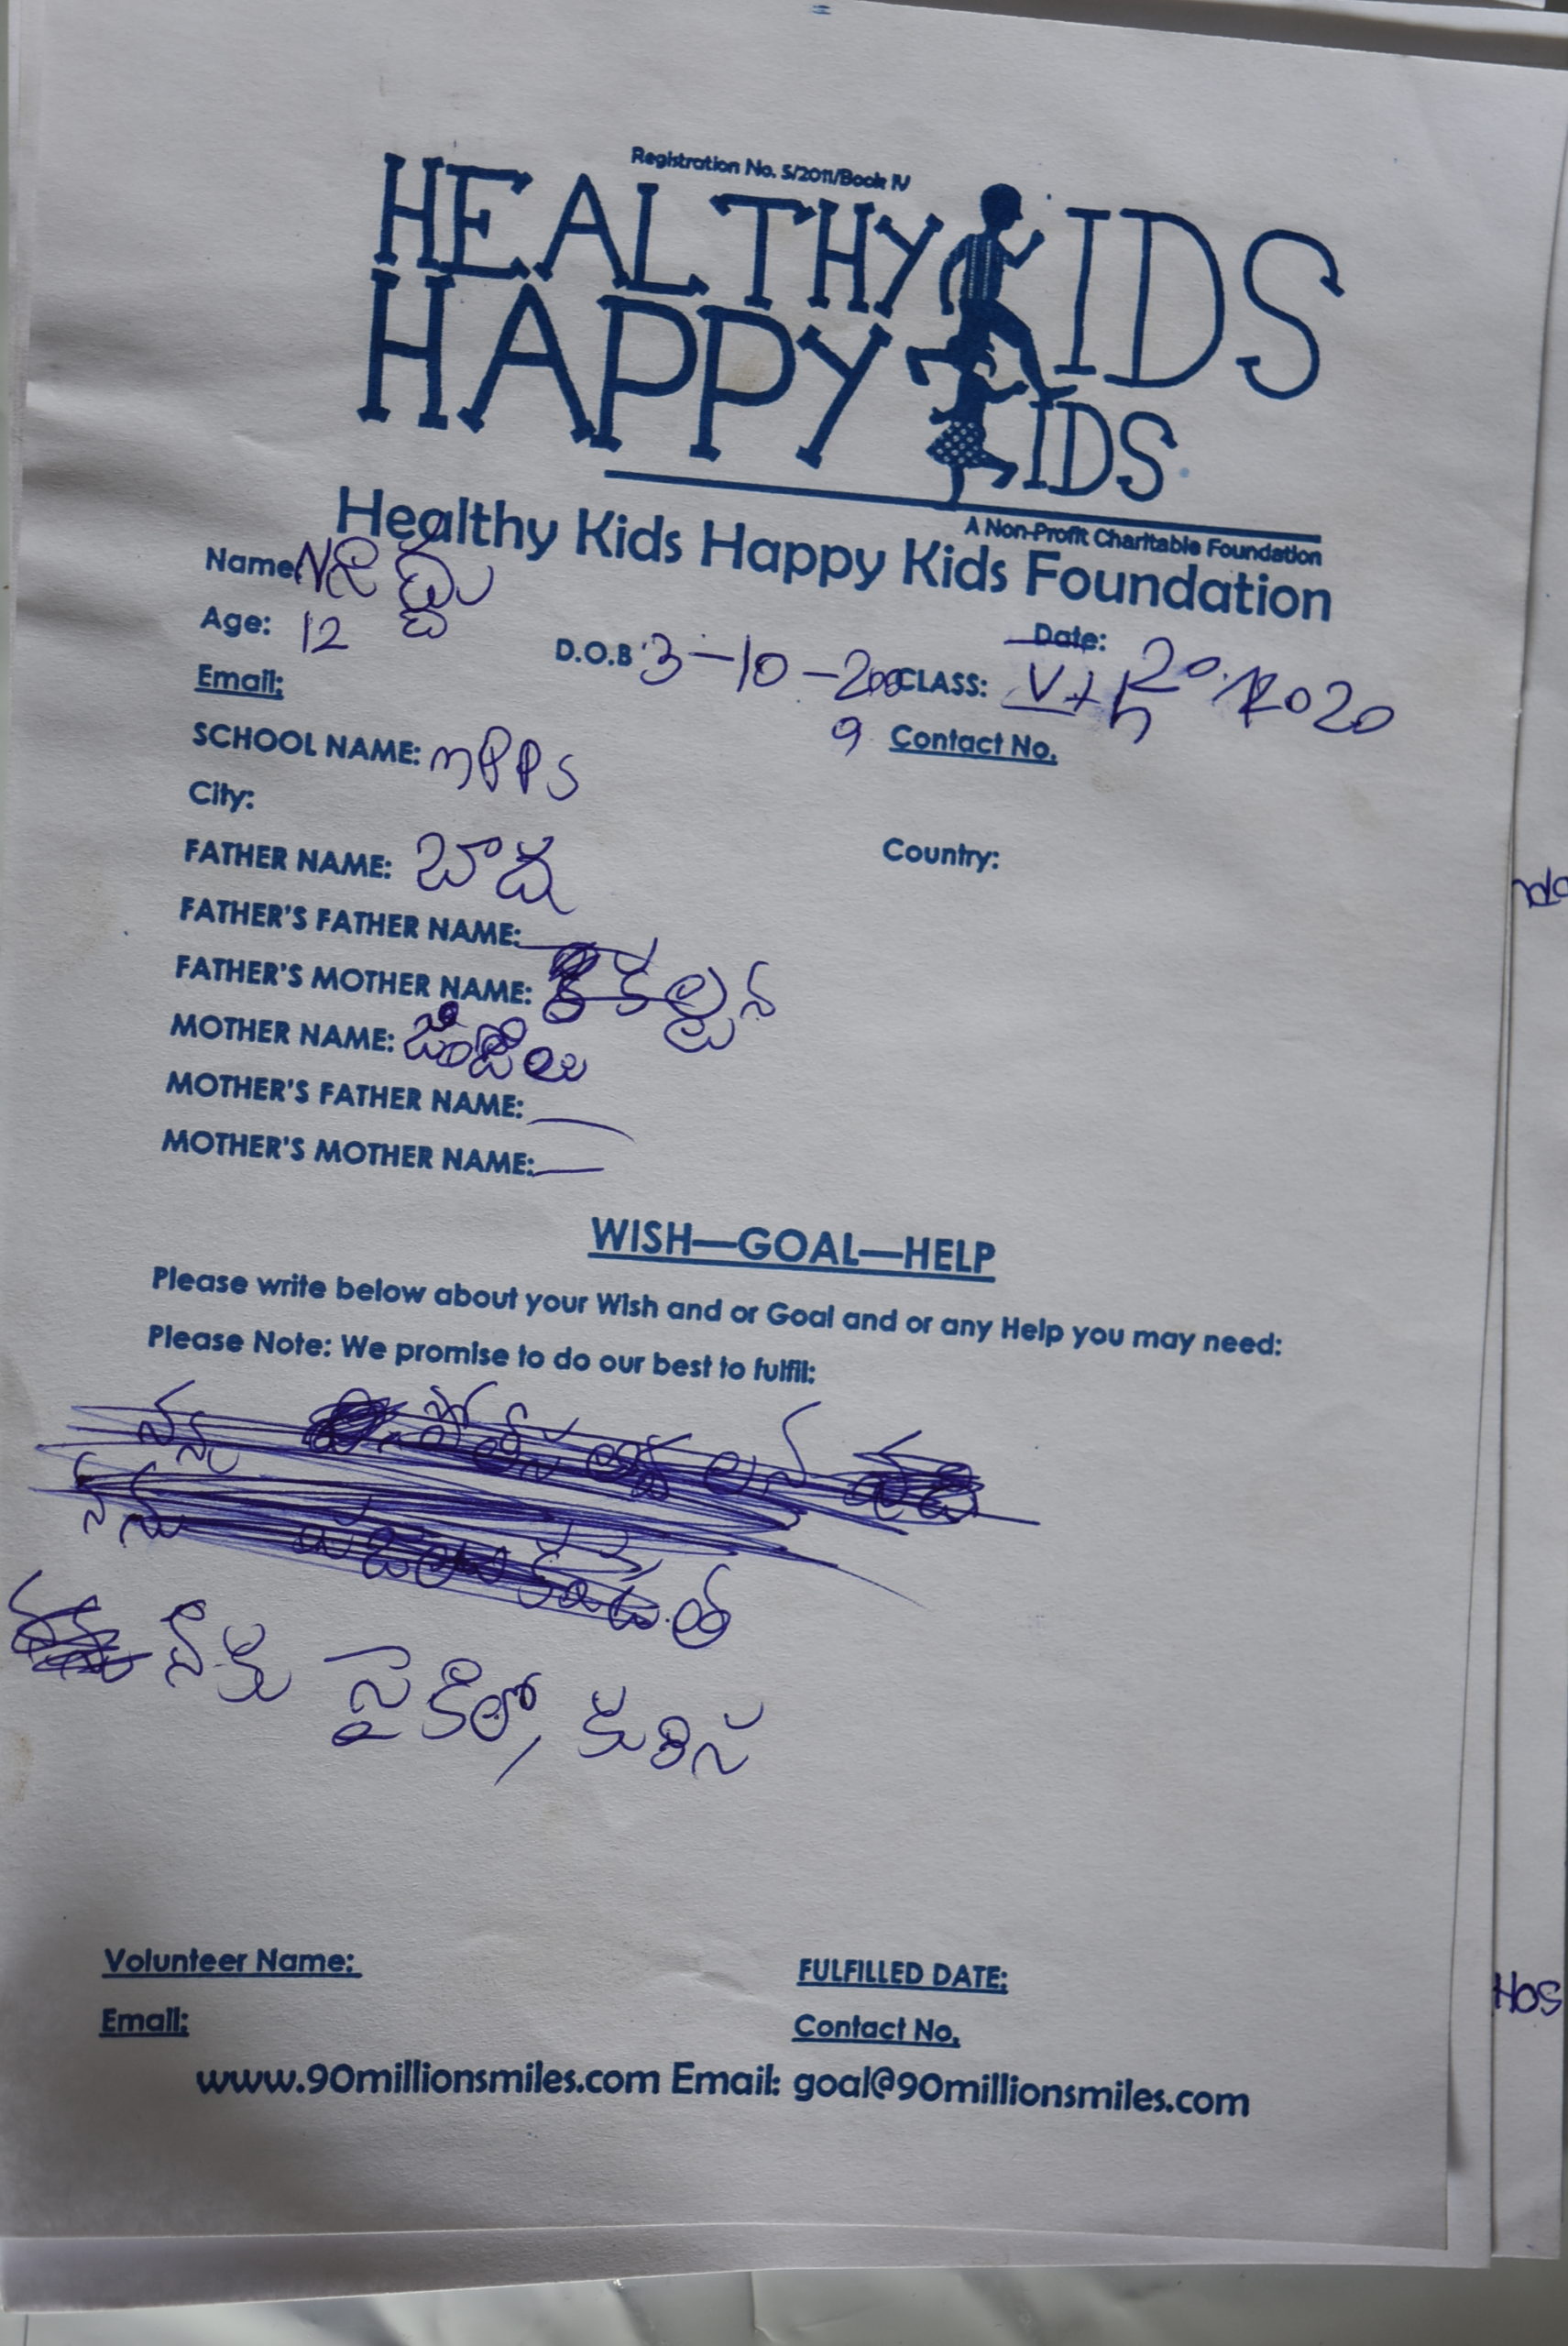 Registration No. 5/2011/Book IV
HEALTHY KIDS
HAPPY KIDS
A Non-Profit Charitable Foundation
Healthy Kids Happy Kids Foundation
Name
Age: 12
Date: 20.12020
D.O.B 3-10-2009
CLASS: Vth
Email:
Contact No.
SCHOOL NAME: MPPS
City:
Country:
FATHER NAME:
FATHER'S FATHER NAME:
FATHER'S MOTHER NAME:
MOTHER NAME:
MOTHER'S FATHER NAME:
MOTHER'S MOTHER NAME:
WISH—GOAL—HELP
Please write below about your Wish and or Goal and or any Help you may need:
Please Note: We promise to do our best to fulfil:
నీకు సైకిలో, కురిస
Volunteer Name:
FULFILLED DATE:
Email:
Contact No.
www.90millionsmiles.com Email: goal@90millionsmiles.com